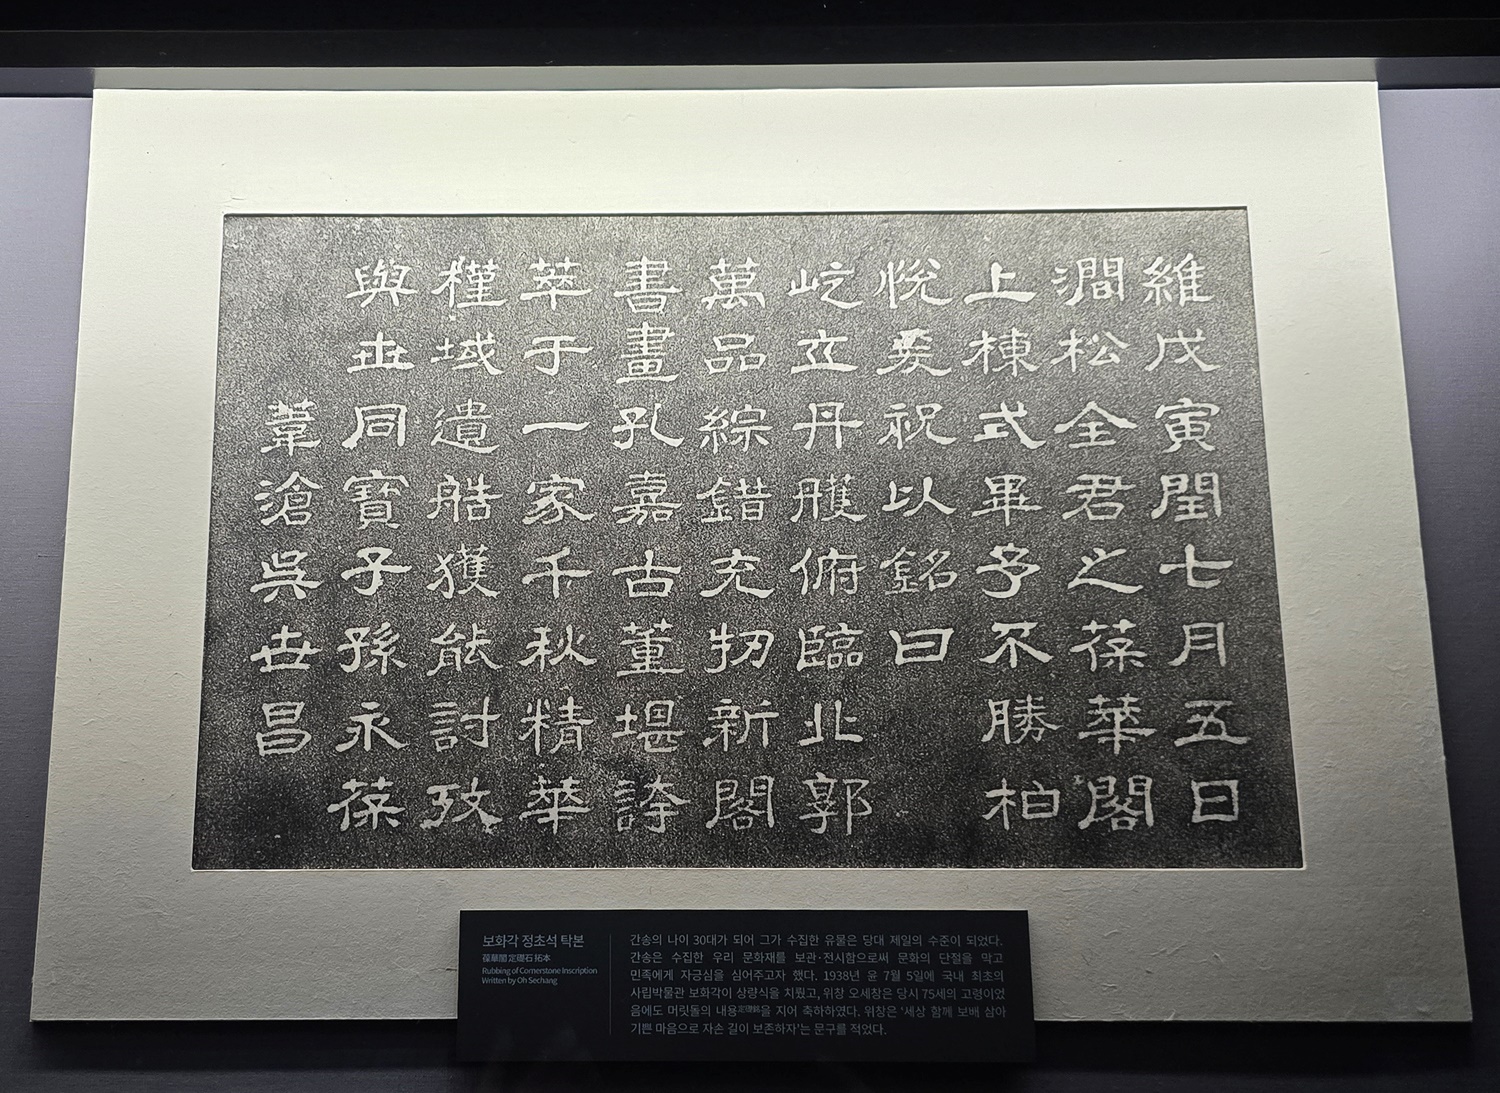 維戊寅閏七月五日
澗松全君之葆華閣
上棟式畢予不勝柏
悅爰祝以銘曰
屹立丹雘俯臨北郭
萬品綜錯充牣新閣
書畫孔嘉古董堪誇
萃于一家千秋精華
槿域遺艁獲能討攷
與世同寶子孫永葆
葦滄吳世昌
보화각 정초석 탁본
葆華閣 定礎石 拓本
Rubbing of Cornerstone Inscription
Written by Oh Sechang
간송의 나이 30대가 되어 그가 수집한 유물은 당대 제일의 수준이 되었다.
간송은 수집한 우리 문화재를 보관·전시함으로써 문화의 단절을 막고
민족에게 자긍심을 심어주고자 했다. 1938년 윤 7월 5일에 국내 최초의
사립박물관 보화각이 상량식을 치뤘고, 위창 오세창은 당시 75세의 고령이었
음에도 머릿돌의 내용定礎銘을 지어 축하하였다. 위창은 '세상 함께 보배 삼아
기쁜 마음으로 자손 길이 보존하자'는 문구를 적었다.